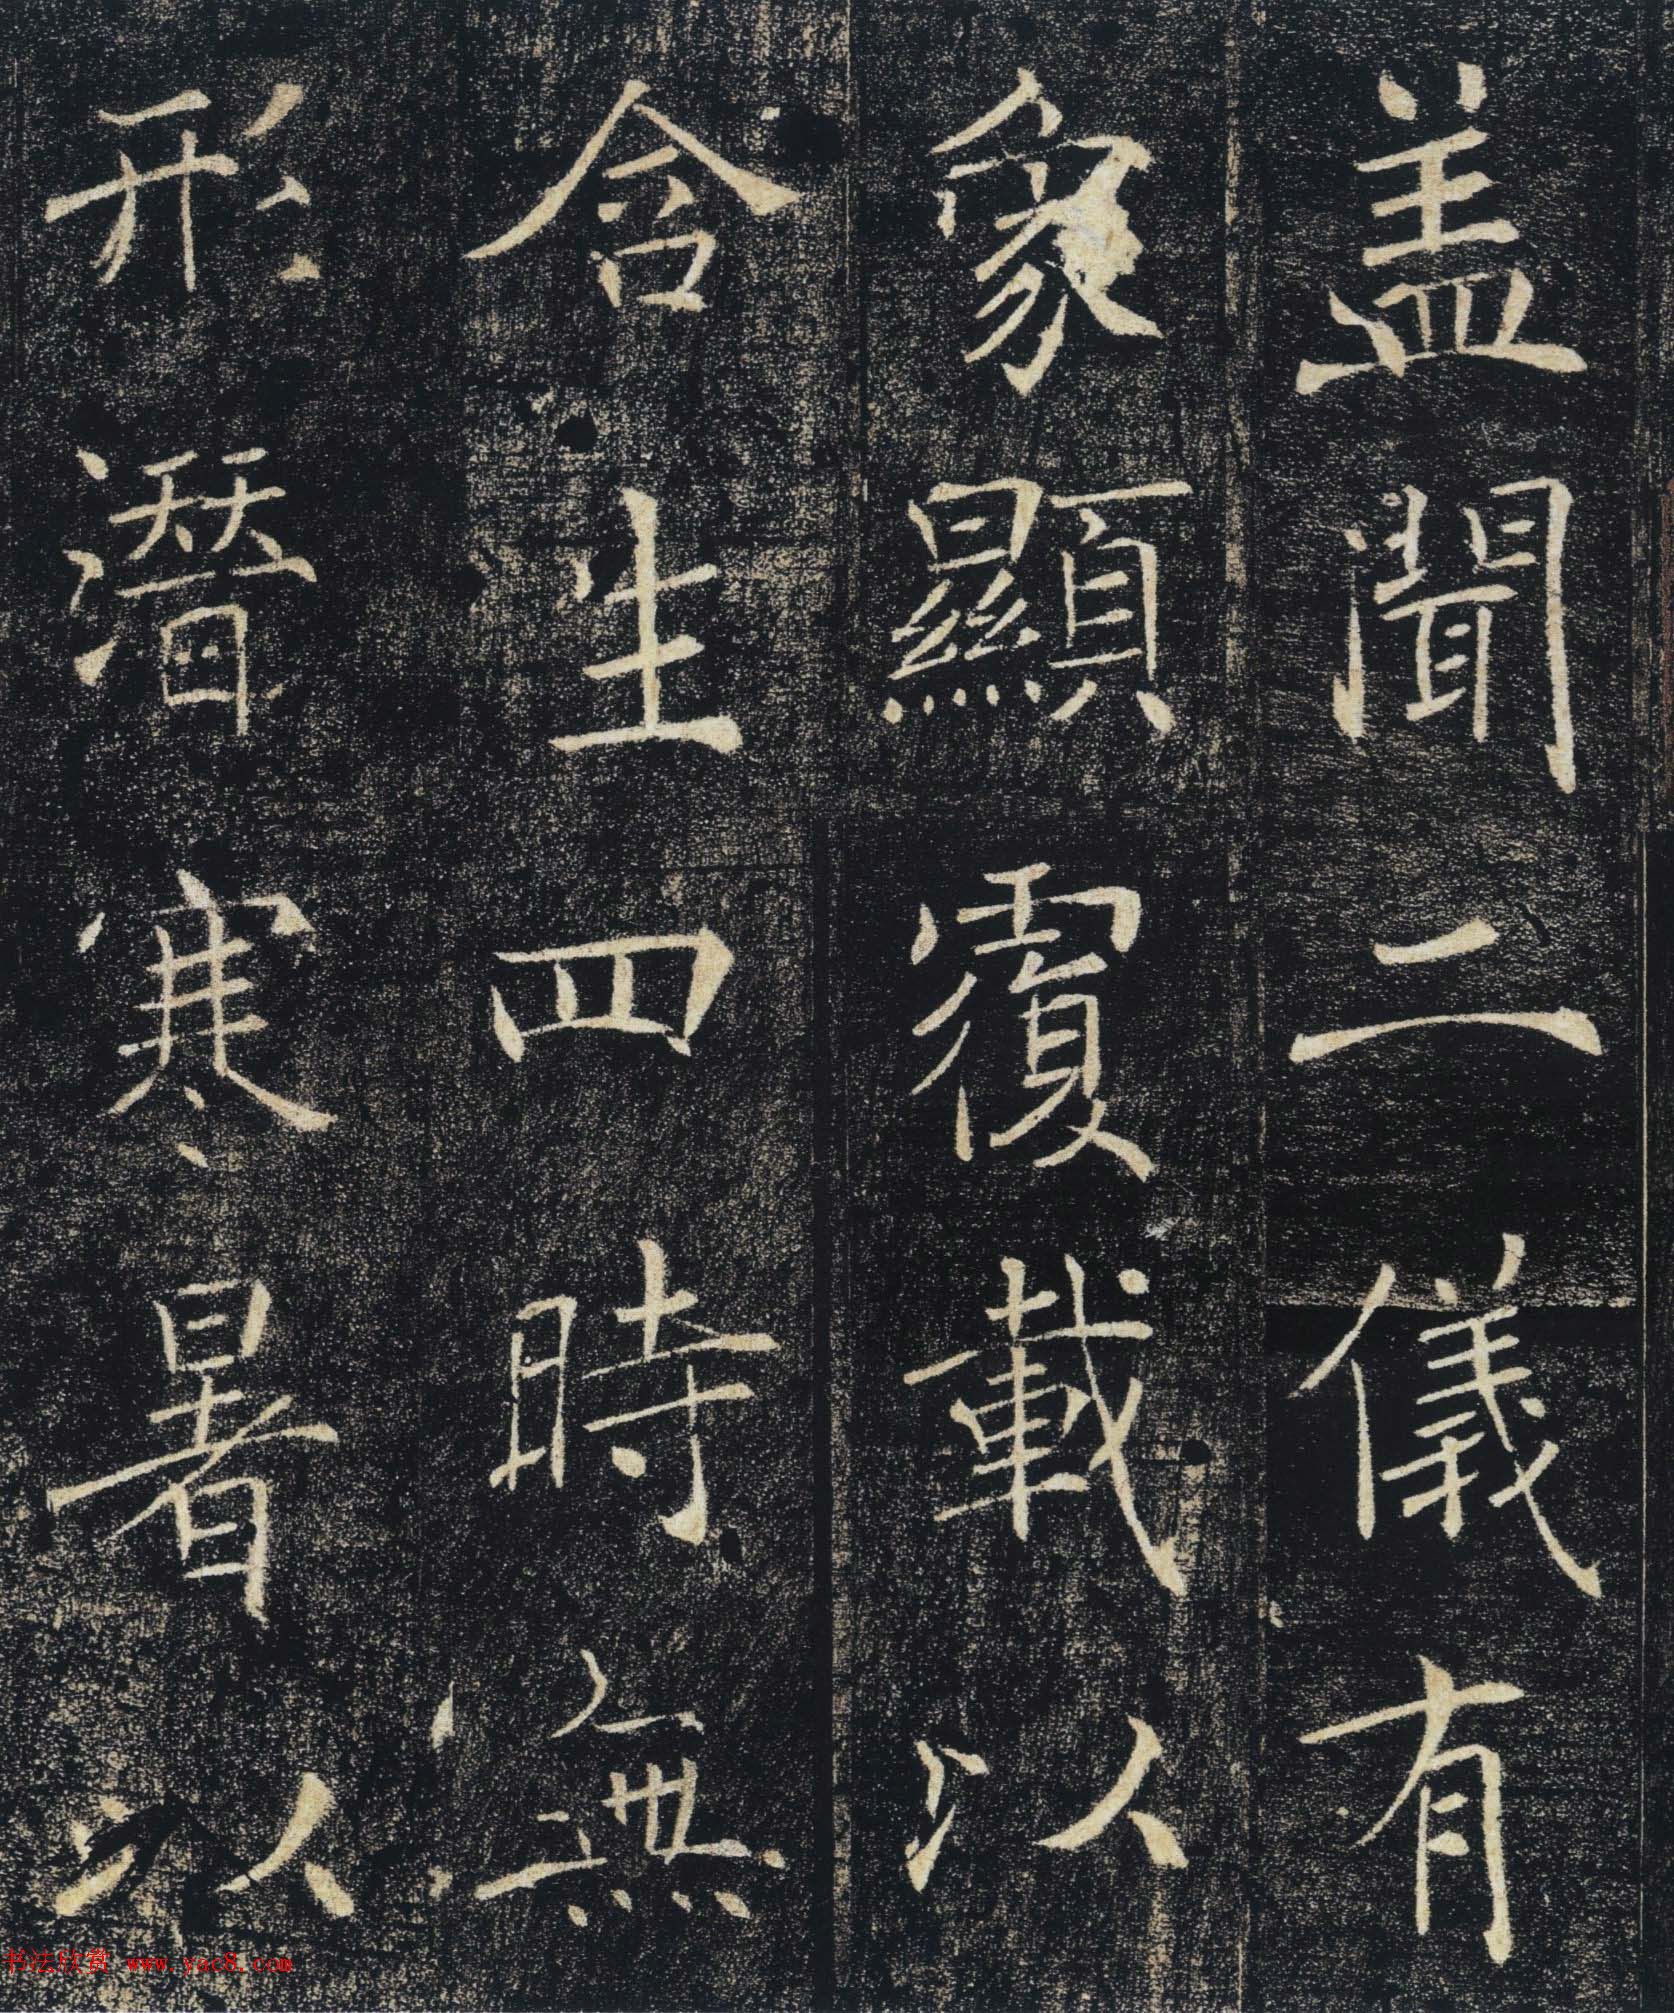 盖聞二儀有
象顯覆載以
含生四時無
形潛寒暑以
书法欣赏 www.yac8.com